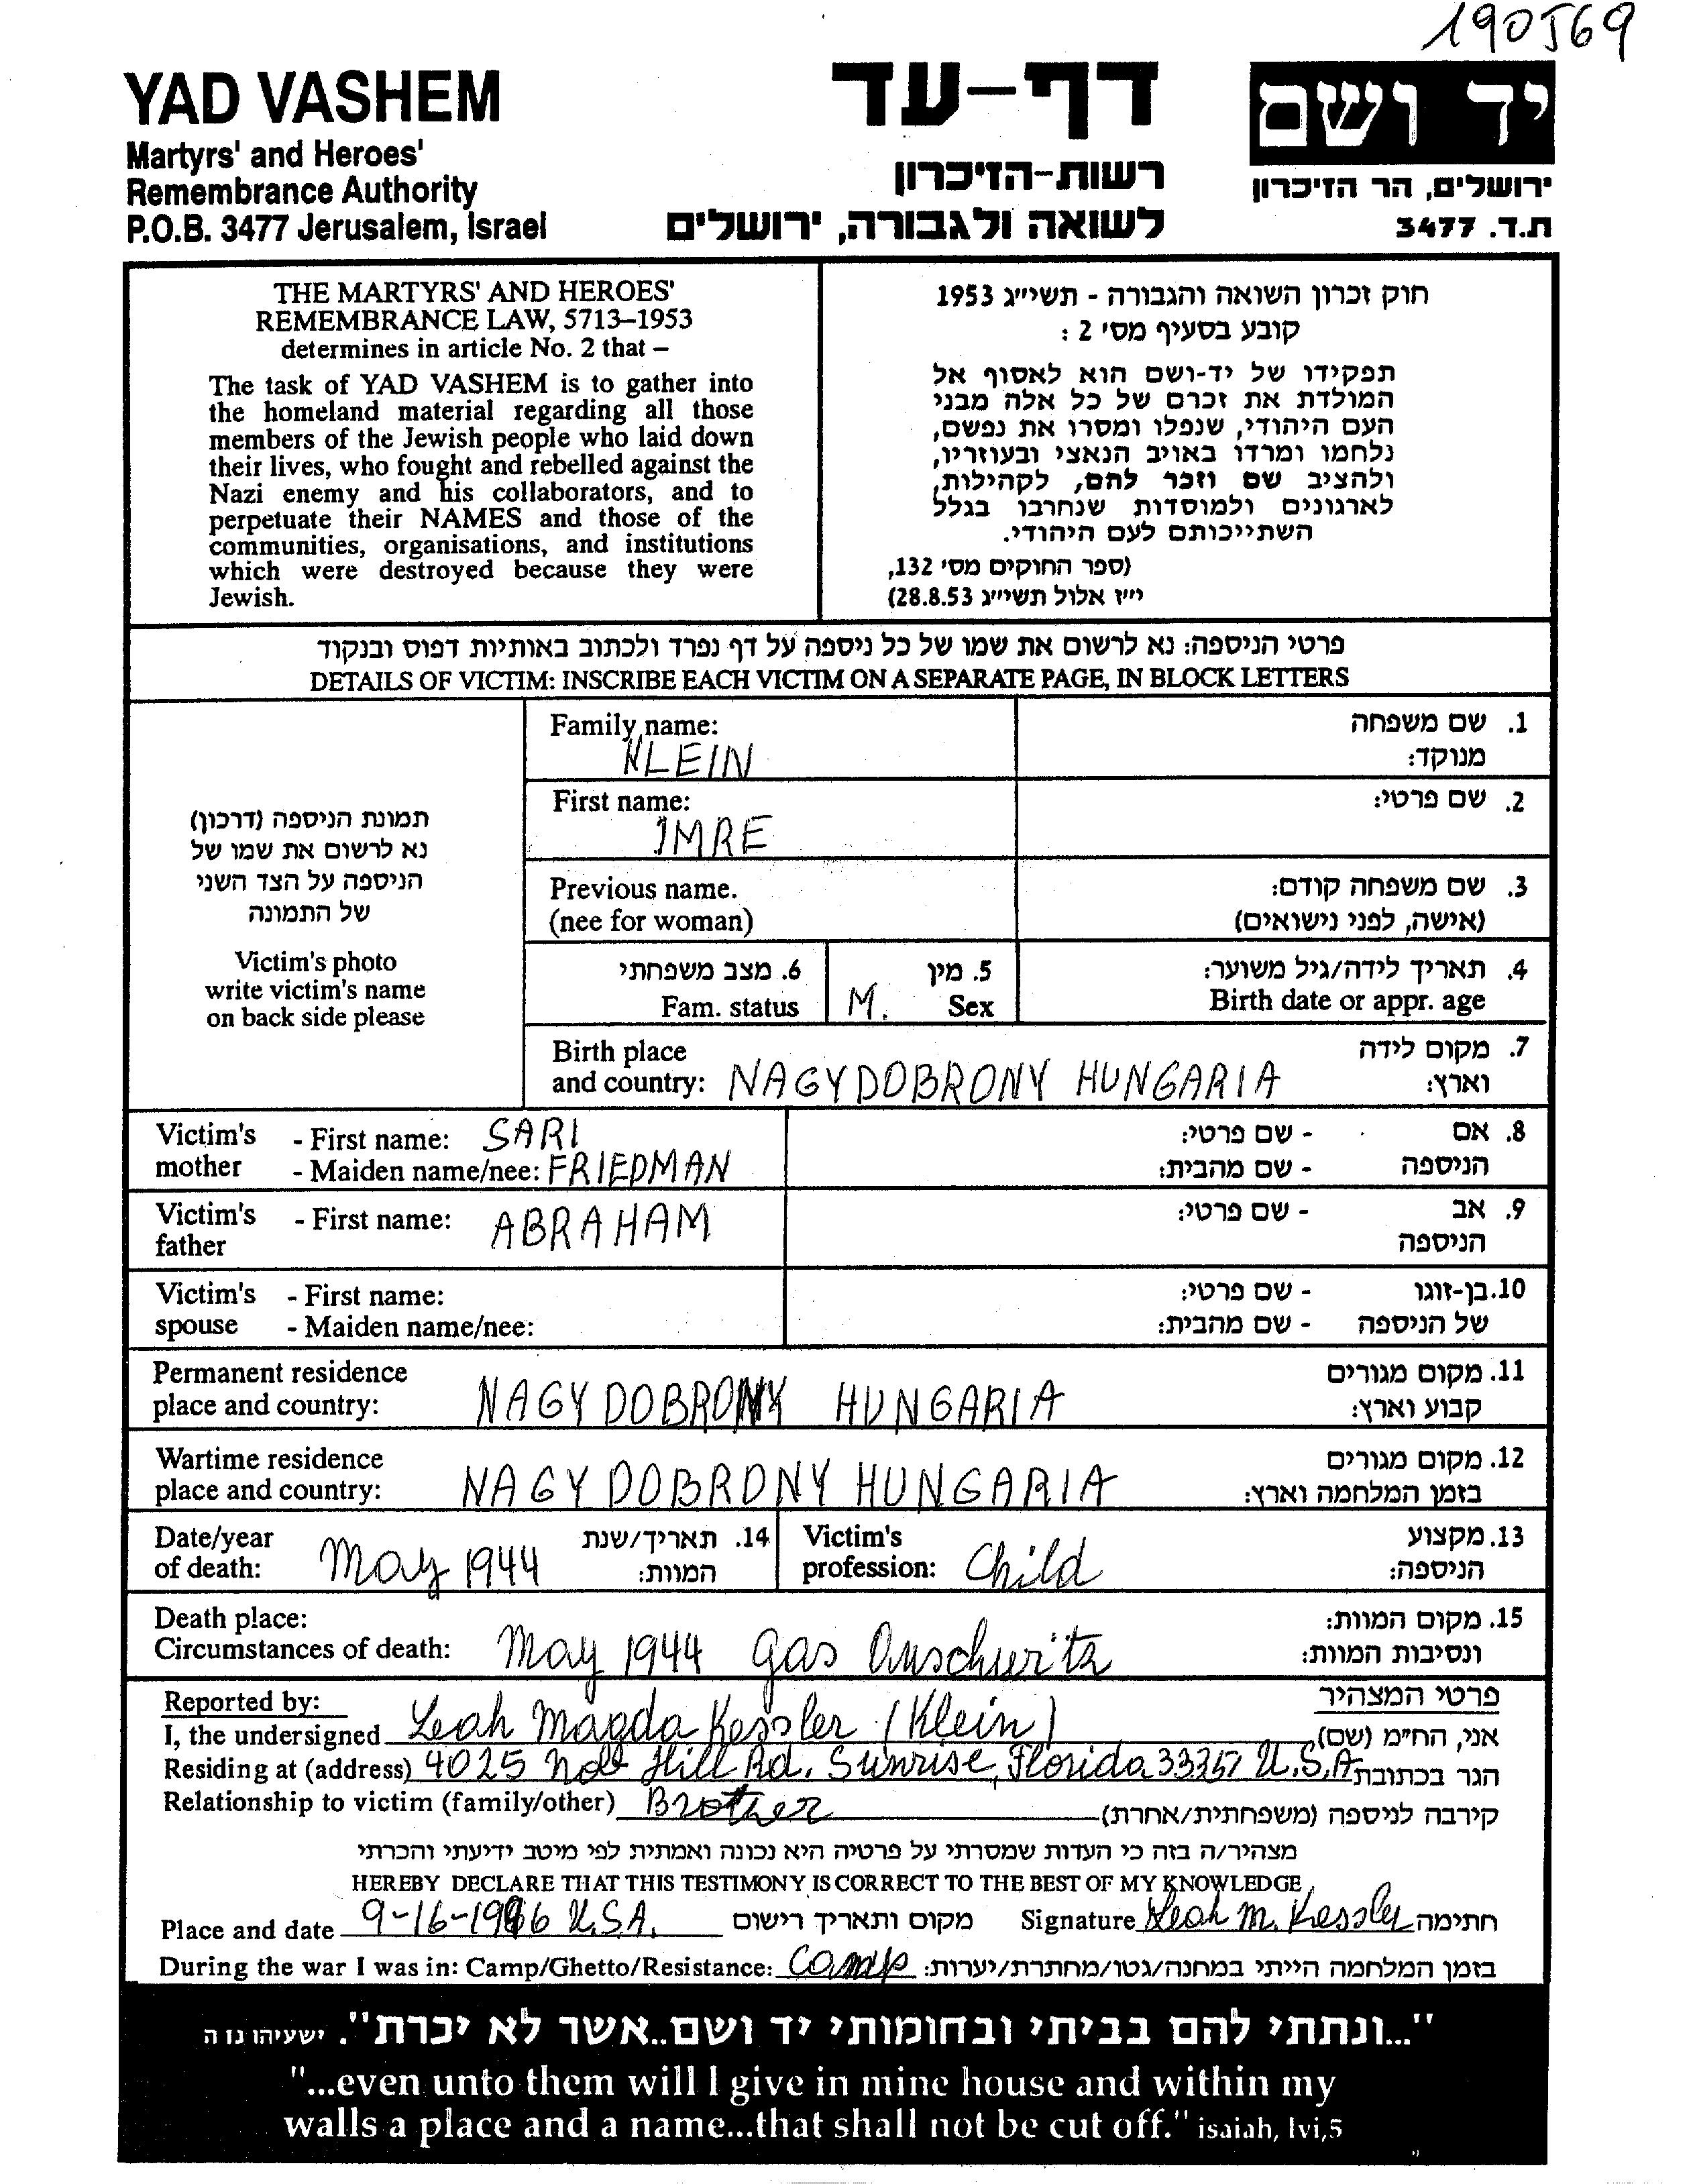 190569
YAD VASHEM
Martyrs' and Heroes'
Remembrance Authority
P.O.B. 3477 Jerusalem, Israel
דף-עד
רשות-הזיכרון
לשואה ולגבורה, ירושלים
יד ושם
ירושלים, הר הזיכרון
ת.ד. 3477
THE MARTYRS' AND HEROES'
REMEMBRANCE LAW, 5713–1953
determines in article No. 2 that –
The task of YAD VASHEM is to gather into
the homeland material regarding all those
members of the Jewish people who laid down
their lives, who fought and rebelled against the
Nazi enemy and his collaborators, and to
perpetuate their NAMES and those of the
communities, organisations, and institutions
which were destroyed because they were
Jewish.
חוק זכרון השואה והגבורה - תשי״ג 1953
קובע בסעיף מס׳ 2 :
תפקידו של יד-ושם הוא לאסוף אל
המולדת את זכרם של כל אלה מבני
העם היהודי, שנפלו ומסרו את נפשם,
נלחמו ומרדו באויב הנאצי ובעוזריו,
ולהציב שם וזכר להם, לקהילות,
לארגונים ולמוסדות שנחרבו בגלל
השתייכותם לעם היהודי.
(ספר החוקים מס׳ 132,
י״ז אלול תשי״ג 28.8.53)
פרטי הניספה: נא לרשום את שמו של כל ניספה על דף נפרד ולכתוב באותיות דפוס ובנקוד
DETAILS OF VICTIM: INSCRIBE EACH VICTIM ON A SEPARATE PAGE, IN BLOCK LETTERS
תמונת הניספה (דרכון)
נא לרשום את שמו של
הניספה על הצד השני
של התמונה
Victim's photo
write victim's name
on back side please
Family name: 1. שם משפחה
KLEIN מנוקד:
First name: 2. שם פרטי:
IMRE
Previous name. 3. שם משפחה קודם:
(nee for woman) (אישה, לפני נישואים)
6. מצב משפחתי 5. מין 4. תאריך לידה/גיל משוער:
Fam. status M. Sex Birth date or appr. age
Birth place 7. מקום לידה
and country: NAGYDOBRONY HUNGARIA וארץ:
Victim's - First name: SARI 8. אם - שם פרטי:
mother - Maiden name/nee: FRIEDMAN הניספה - שם מהבית:
Victim's - First name: ABRAHAM 9. אב - שם פרטי:
father הניספה
Victim's - First name: 10. בן-זוגו - שם פרטי:
spouse - Maiden name/nee: של הניספה - שם מהבית:
Permanent residence 11. מקום מגורים
place and country: NAGY DOBRONY HUNGARIA קבוע וארץ:
Wartime residence 12. מקום מגורים
place and country: NAGY DOBRONY HUNGARIA בזמן המלחמה וארץ:
Date/year 14. תאריך/שנת Victim's 13. מקצוע
of death: May 1944 המוות: profession: Child הניספה:
Death place: 15. מקום המוות:
Circumstances of death: May 1944 gas Auschwitz ונסיבות המוות:
Reported by: פרטי המצהיר
I, the undersigned Leah Magda Kessler (Klein) אני, הח״מ (שם)
Residing at (address) 4025 Nob Hill Rd. Sunrise, Florida U.S.A. הגר בכתובת
Relationship to victim (family/other) Brother קירבה לניספה (משפחתית/אחרת)
מצהיר/ה בזה כי העדות שמסרתי על פרטיה היא נכונה ואמתית לפי מיטב ידיעתי והכרתי
HEREBY DECLARE THAT THIS TESTIMONY IS CORRECT TO THE BEST OF MY KNOWLEDGE
Place and date 9-16-1996 U.S.A. מקום ותאריך רישום Signature Leah M. Kessler חתימה
During the war I was in: Camp/Ghetto/Resistance: Camp בזמן המלחמה הייתי במחנה/גטו/מחתרת/יערות:
"...ונתתי להם בביתי ובחומותי יד ושם..אשר לא יכרת". ישעיהו נו ה
"...even unto them will I give in mine house and within my
walls a place and a name...that shall not be cut off." isaiah, lvi,5